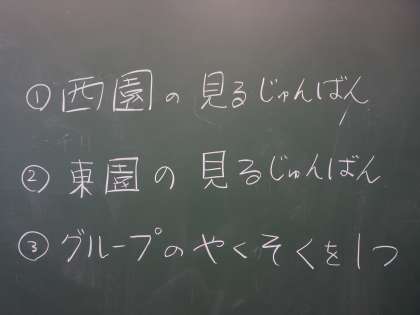 ① 西園の見るじゅんばん
② 東園の見るじゅんばん
③ グループのやくそくを1つ